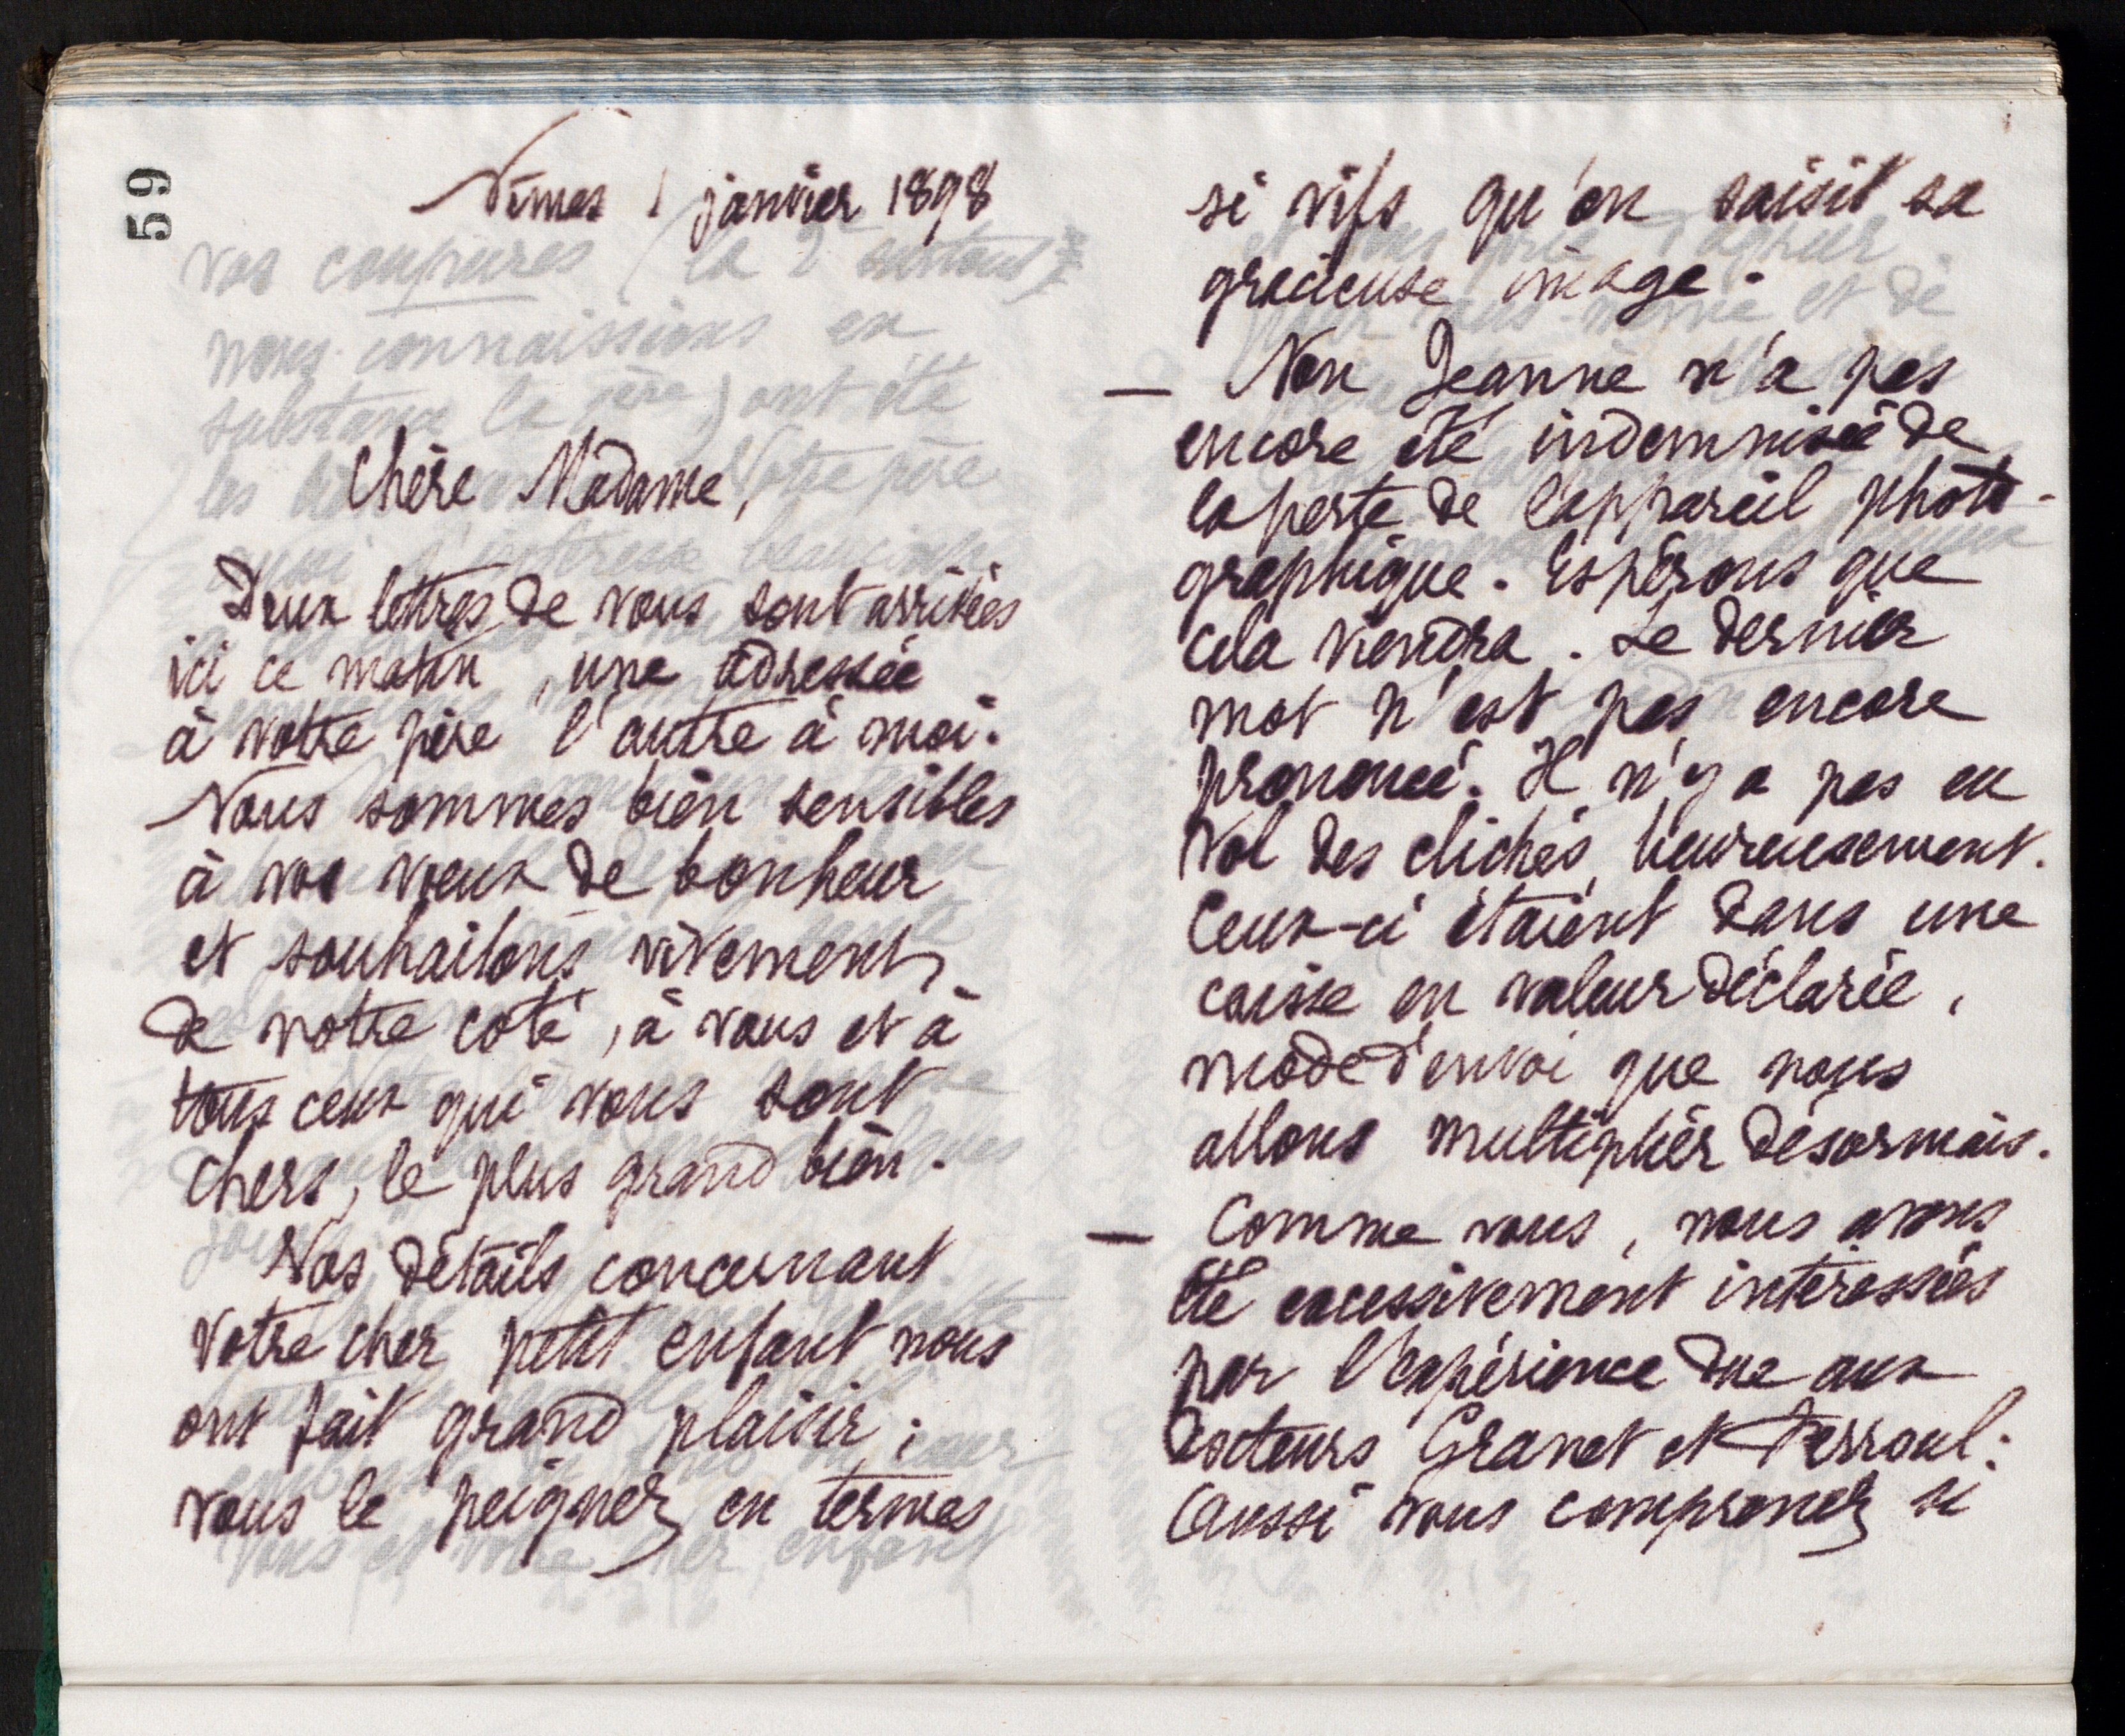 59
Nîmes 1 janvier 1898
Chère Madame,
Deux lettres de vous sont arrivées
ici ce matin, une adressée
à votre père l'autre à moi.
Nous sommes bien sensibles
à vos vœux de bonheur
et souhaitons vivement,
de notre coté, à vous et à
tous ceux qui vous sont
chers, le plus grand bien.
Vos détails concernant
votre cher petit enfant nous
ont fait grand plaisir;
vous le peignez en termes
si vifs qu'on saisit sa
gracieuse image.
— Non Jeanne n'a pas
encore été indemnisée de
la perte de l'appareil photo-
graphique. Espérons que
cela viendra. Le dernier
mot n'est pas encore
prononcé. Il n'y a pas eu
vol des clichés, heureusement.
Ceux-ci étaient dans une
caisse en valeur déclarée,
mode d'envoi que nous
allons multiplier désormais.
— Comme vous, nous avons
été excessivement intéressées
par l'expérience due aux
docteurs Granet et Ferroul:
aussi vous comprenez si